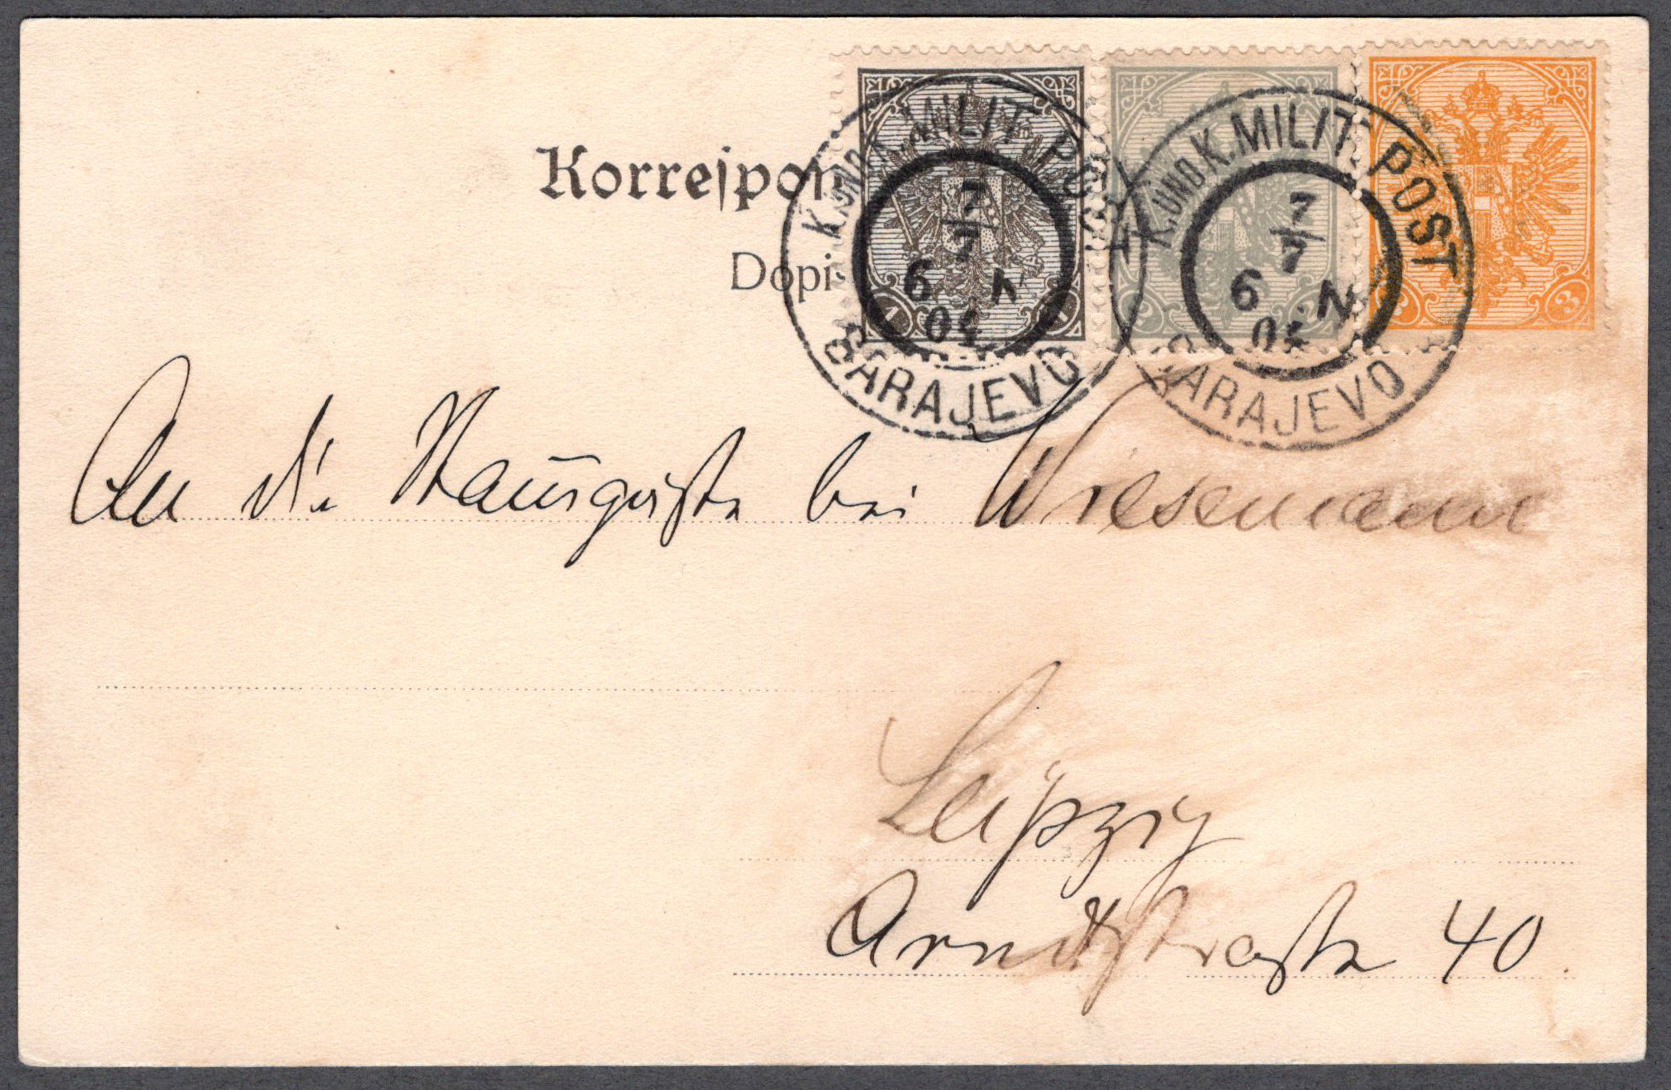 Korrespon
Dopi
K. UND K. MILIT. POST
7
7
6 N
04
SARAJEVO
K. UND K. MILIT. POST
7
7
6 N
04
SARAJEVO
1 1
2 2
3
An die Stammgäste bei Wiesemann
Leipzig
Arndtstraße 40.